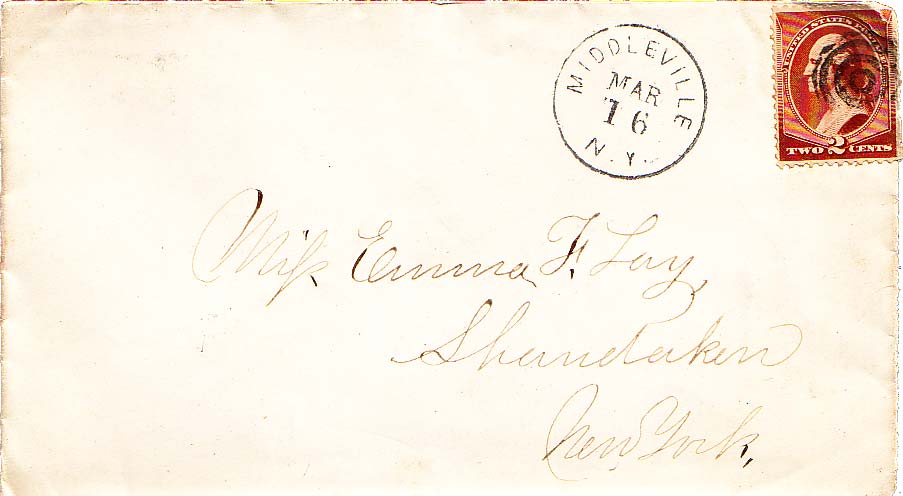 MIDDLEVILLE
MAR
16
N.Y.
UNITED STATES POSTAGE
TWO 2 CENTS
Miss Emma F. Lay,
Shandaken
New York.